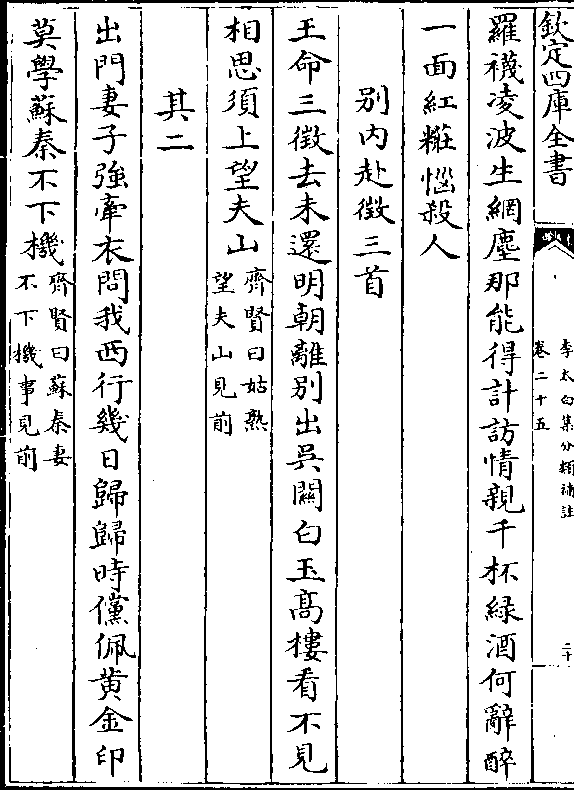 欽定四庫全書
李太白集分類補註
卷二十五
二十
羅襪凌波生網塵那能得計訪情親千杯緑酒何辭醉
一面紅粧惱殺人
别内赴徴三首
王命三徴去未還明朝離别出吳關白玉髙樓看不見
相思須上望夫山齊賢曰姑熟望夫山見前
其二
出門妻子強牽衣問我西行幾日歸歸時儻佩黄金印
莫學蘇秦不下機齊賢曰蘇秦妻不下機事見前